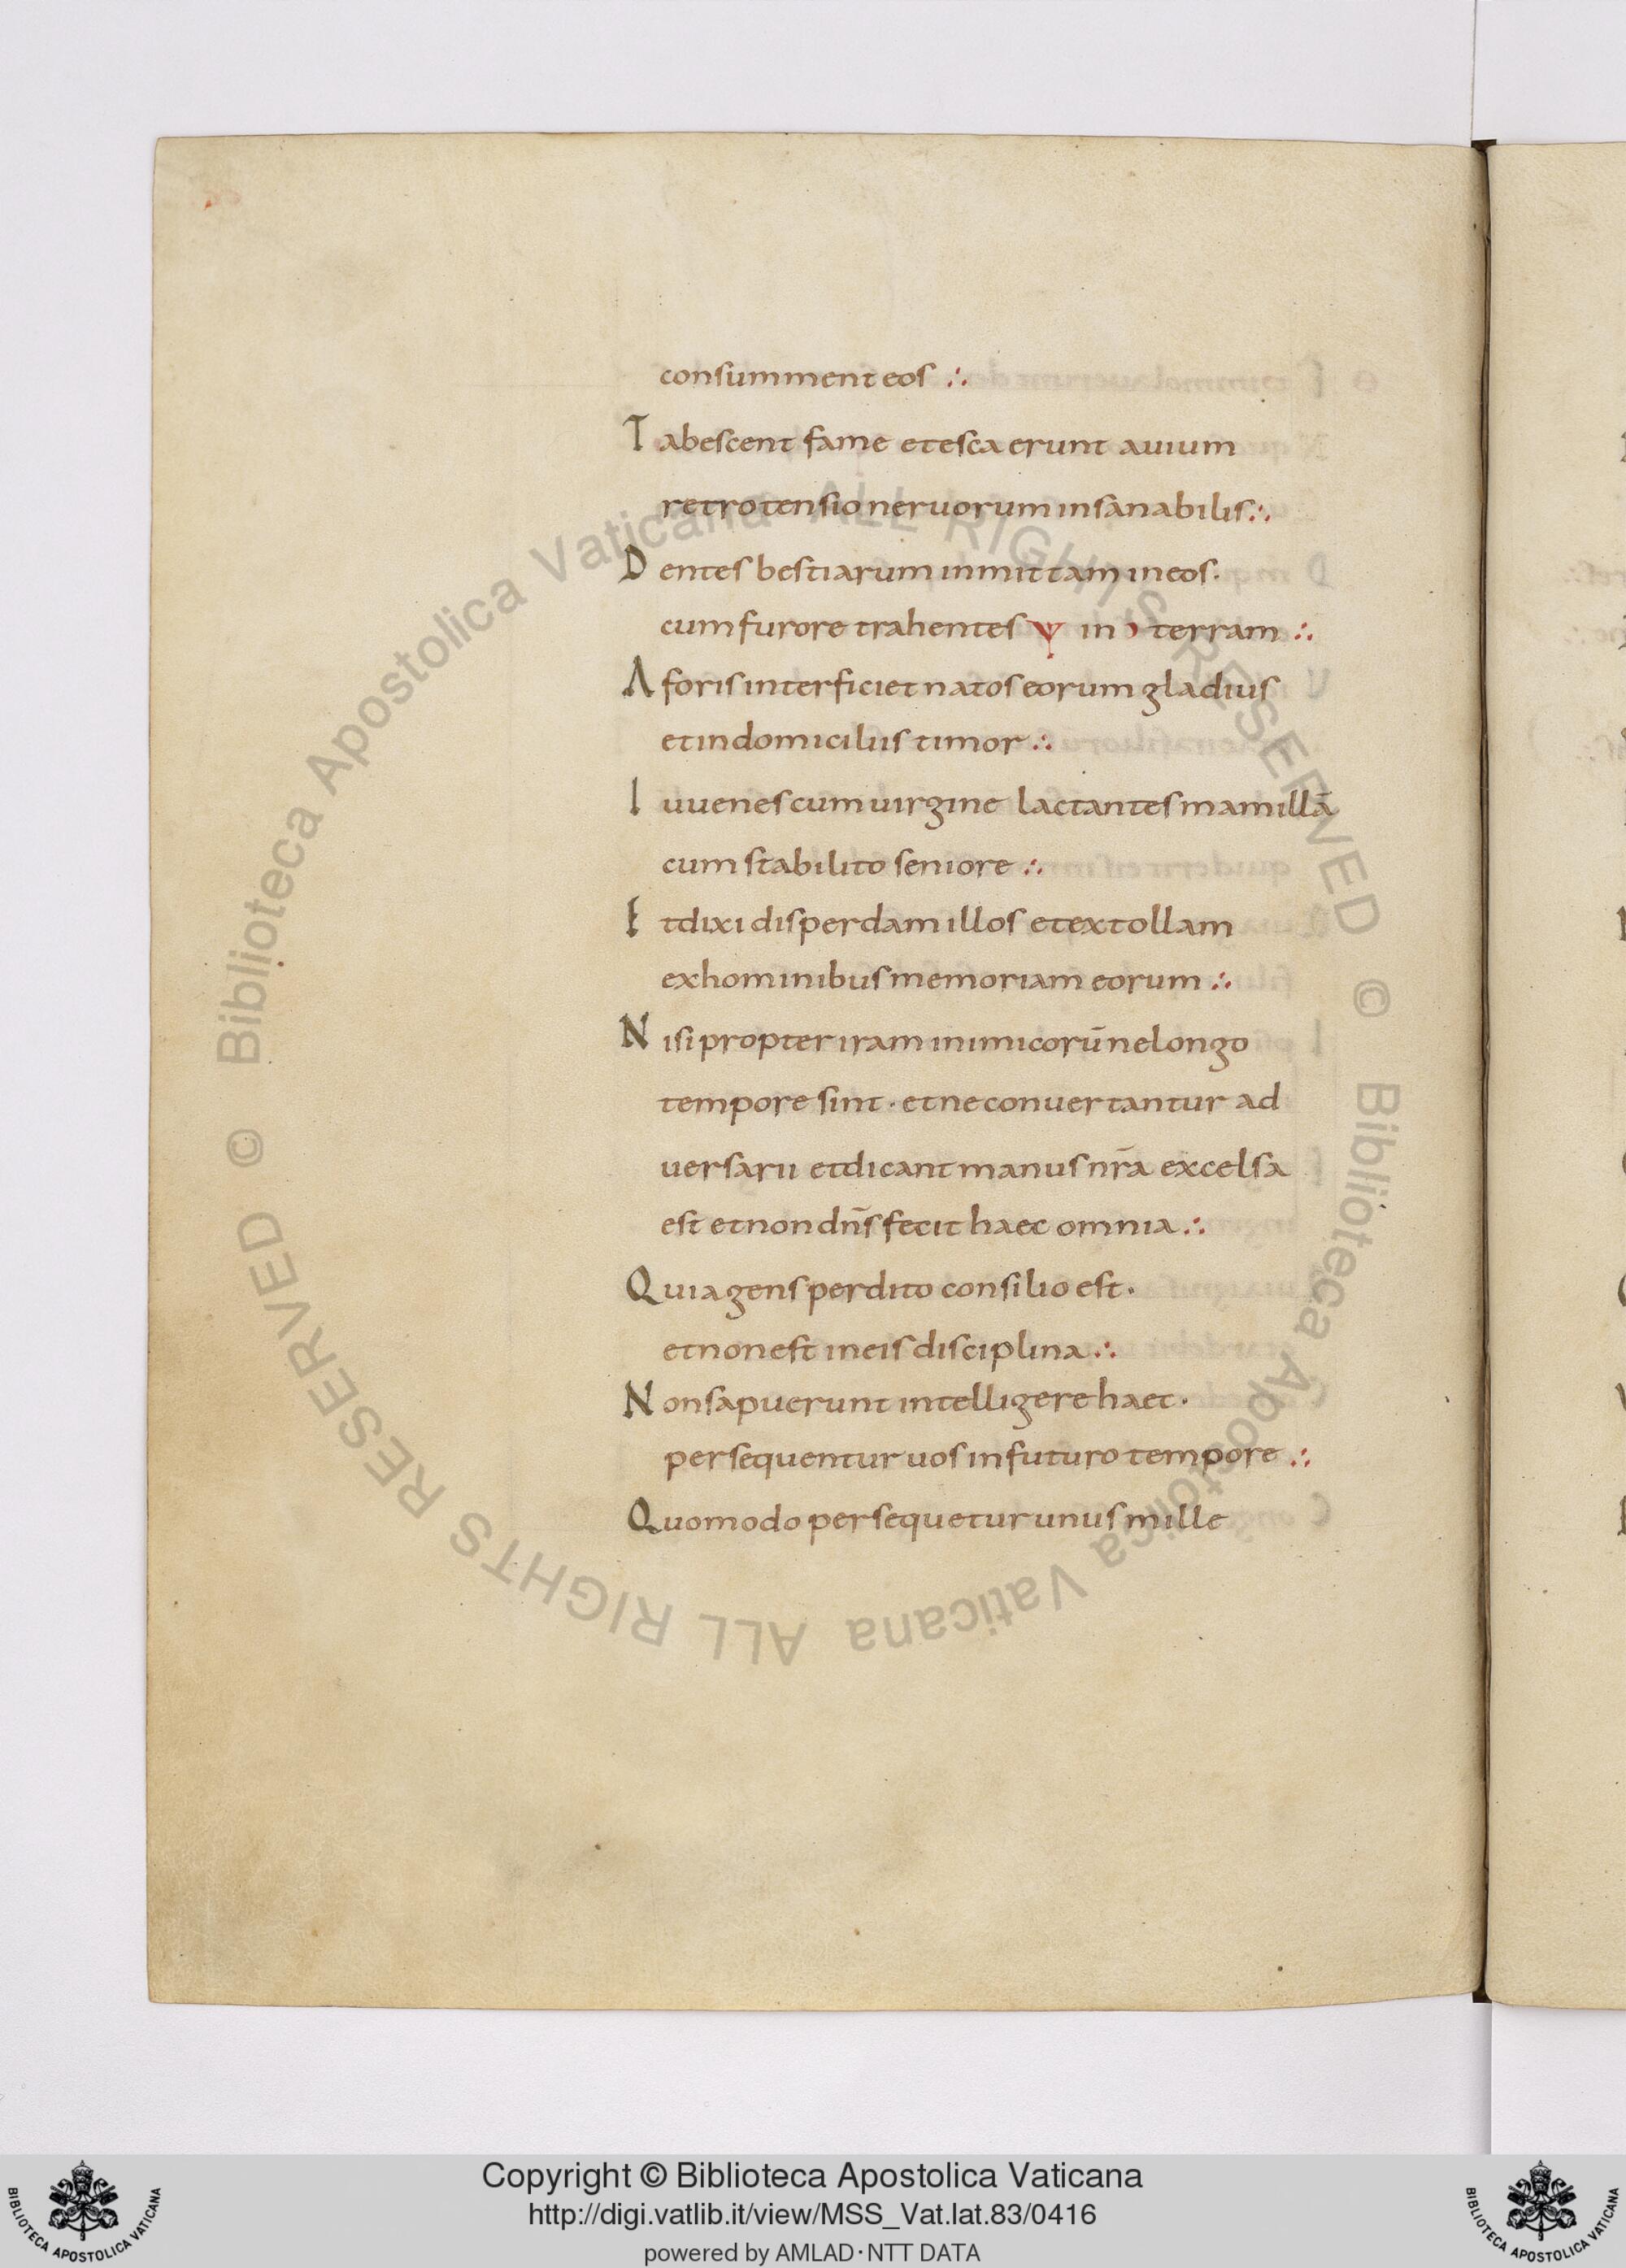 consumment eos ∴
Tabescent fame et esca erunt auium
retrotensio neruorum insanabilis ∴
Dentes bestiarum inmittam in eos·
cum furore trahentes ψ in ꜿ terram ∴
A foris interficiet natos eorum gladius
et in domiciliis timor ∴
Iuuenes cum uirgine lactantes mamillā
cum stabilito seniore ∴
Et dixi disperdam illos et extollam
ex hominibus memoriam eorum ∴
Nisi propter iram inimicorū ne longo
tempore sint · et ne conuertantur ad
uersarii et dicant manus nr̄a excelsa
est et non dn̄s fecit haec omnia ∴
Quia gens perdito consilio est·
et non est in eis disciplina ∴
Non sapuerunt intelligere haec·
persequentur uos in futuro tempore ∴
Quomodo persequetur unus mille
© Biblioteca Apostolica Vaticana ALL RIGHTS RESERVED
© Biblioteca Apostolica Vaticana ALL RIGHTS RESERVED
Copyright © Biblioteca Apostolica Vaticana
http://digi.vatlib.it/view/MSS_Vat.lat.83/0416
powered by AMLAD·NTT DATA
BIBLIOTECA APOSTOLICA VATICANA
BIBLIOTECA APOSTOLICA VATICANA